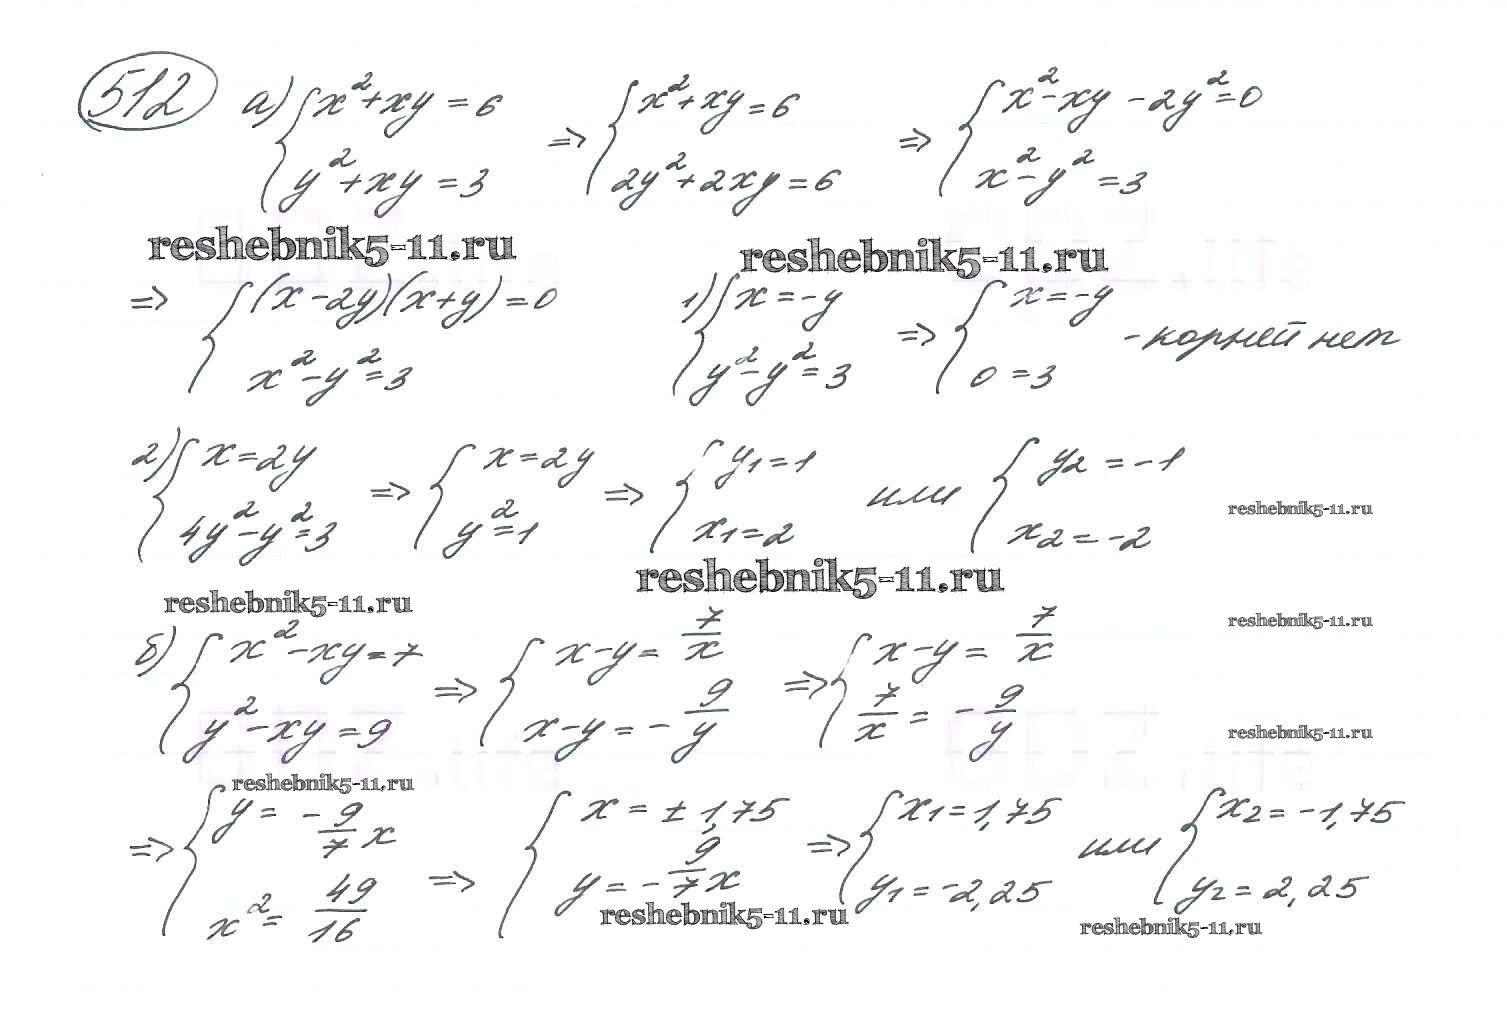 512 а) { x² + xy = 6 ; y² + xy = 3 => { x² + xy = 6 ; 2y² + 2xy = 6 => { x² - xy - 2y² = 0 ; x² - y² = 3
reshebnik5-11.ru reshebnik5-11.ru
=> { (x - 2y)(x + y) = 0 ; x² - y² = 3 1) { x = -y ; y² - y² = 3 => { x = -y ; 0 = 3 - корней нет
2) { x = 2y ; 4y² - y² = 3 => { x = 2y ; y² = 1 => { y1 = 1 ; x1 = 2 или { y2 = -1 ; x2 = -2
reshebnik5-11.ru
reshebnik5-11.ru reshebnik5-11.ru
reshebnik5-11.ru
б) { x² - xy = 7 ; y² - xy = 9 => { x - y = 7/x ; x - y = - 9/y => { x - y = 7/x ; 7/x = - 9/y
reshebnik5-11.ru
reshebnik5-11.ru
=> { y = - 9/7 x ; x² = 49/16 => { x = ± 1,75 ; y = - 9/7 x => { x1 = 1,75 ; y1 = -2,25 или { x2 = -1,75 ; y2 = 2,25
reshebnik5-11.ru reshebnik5-11.ru